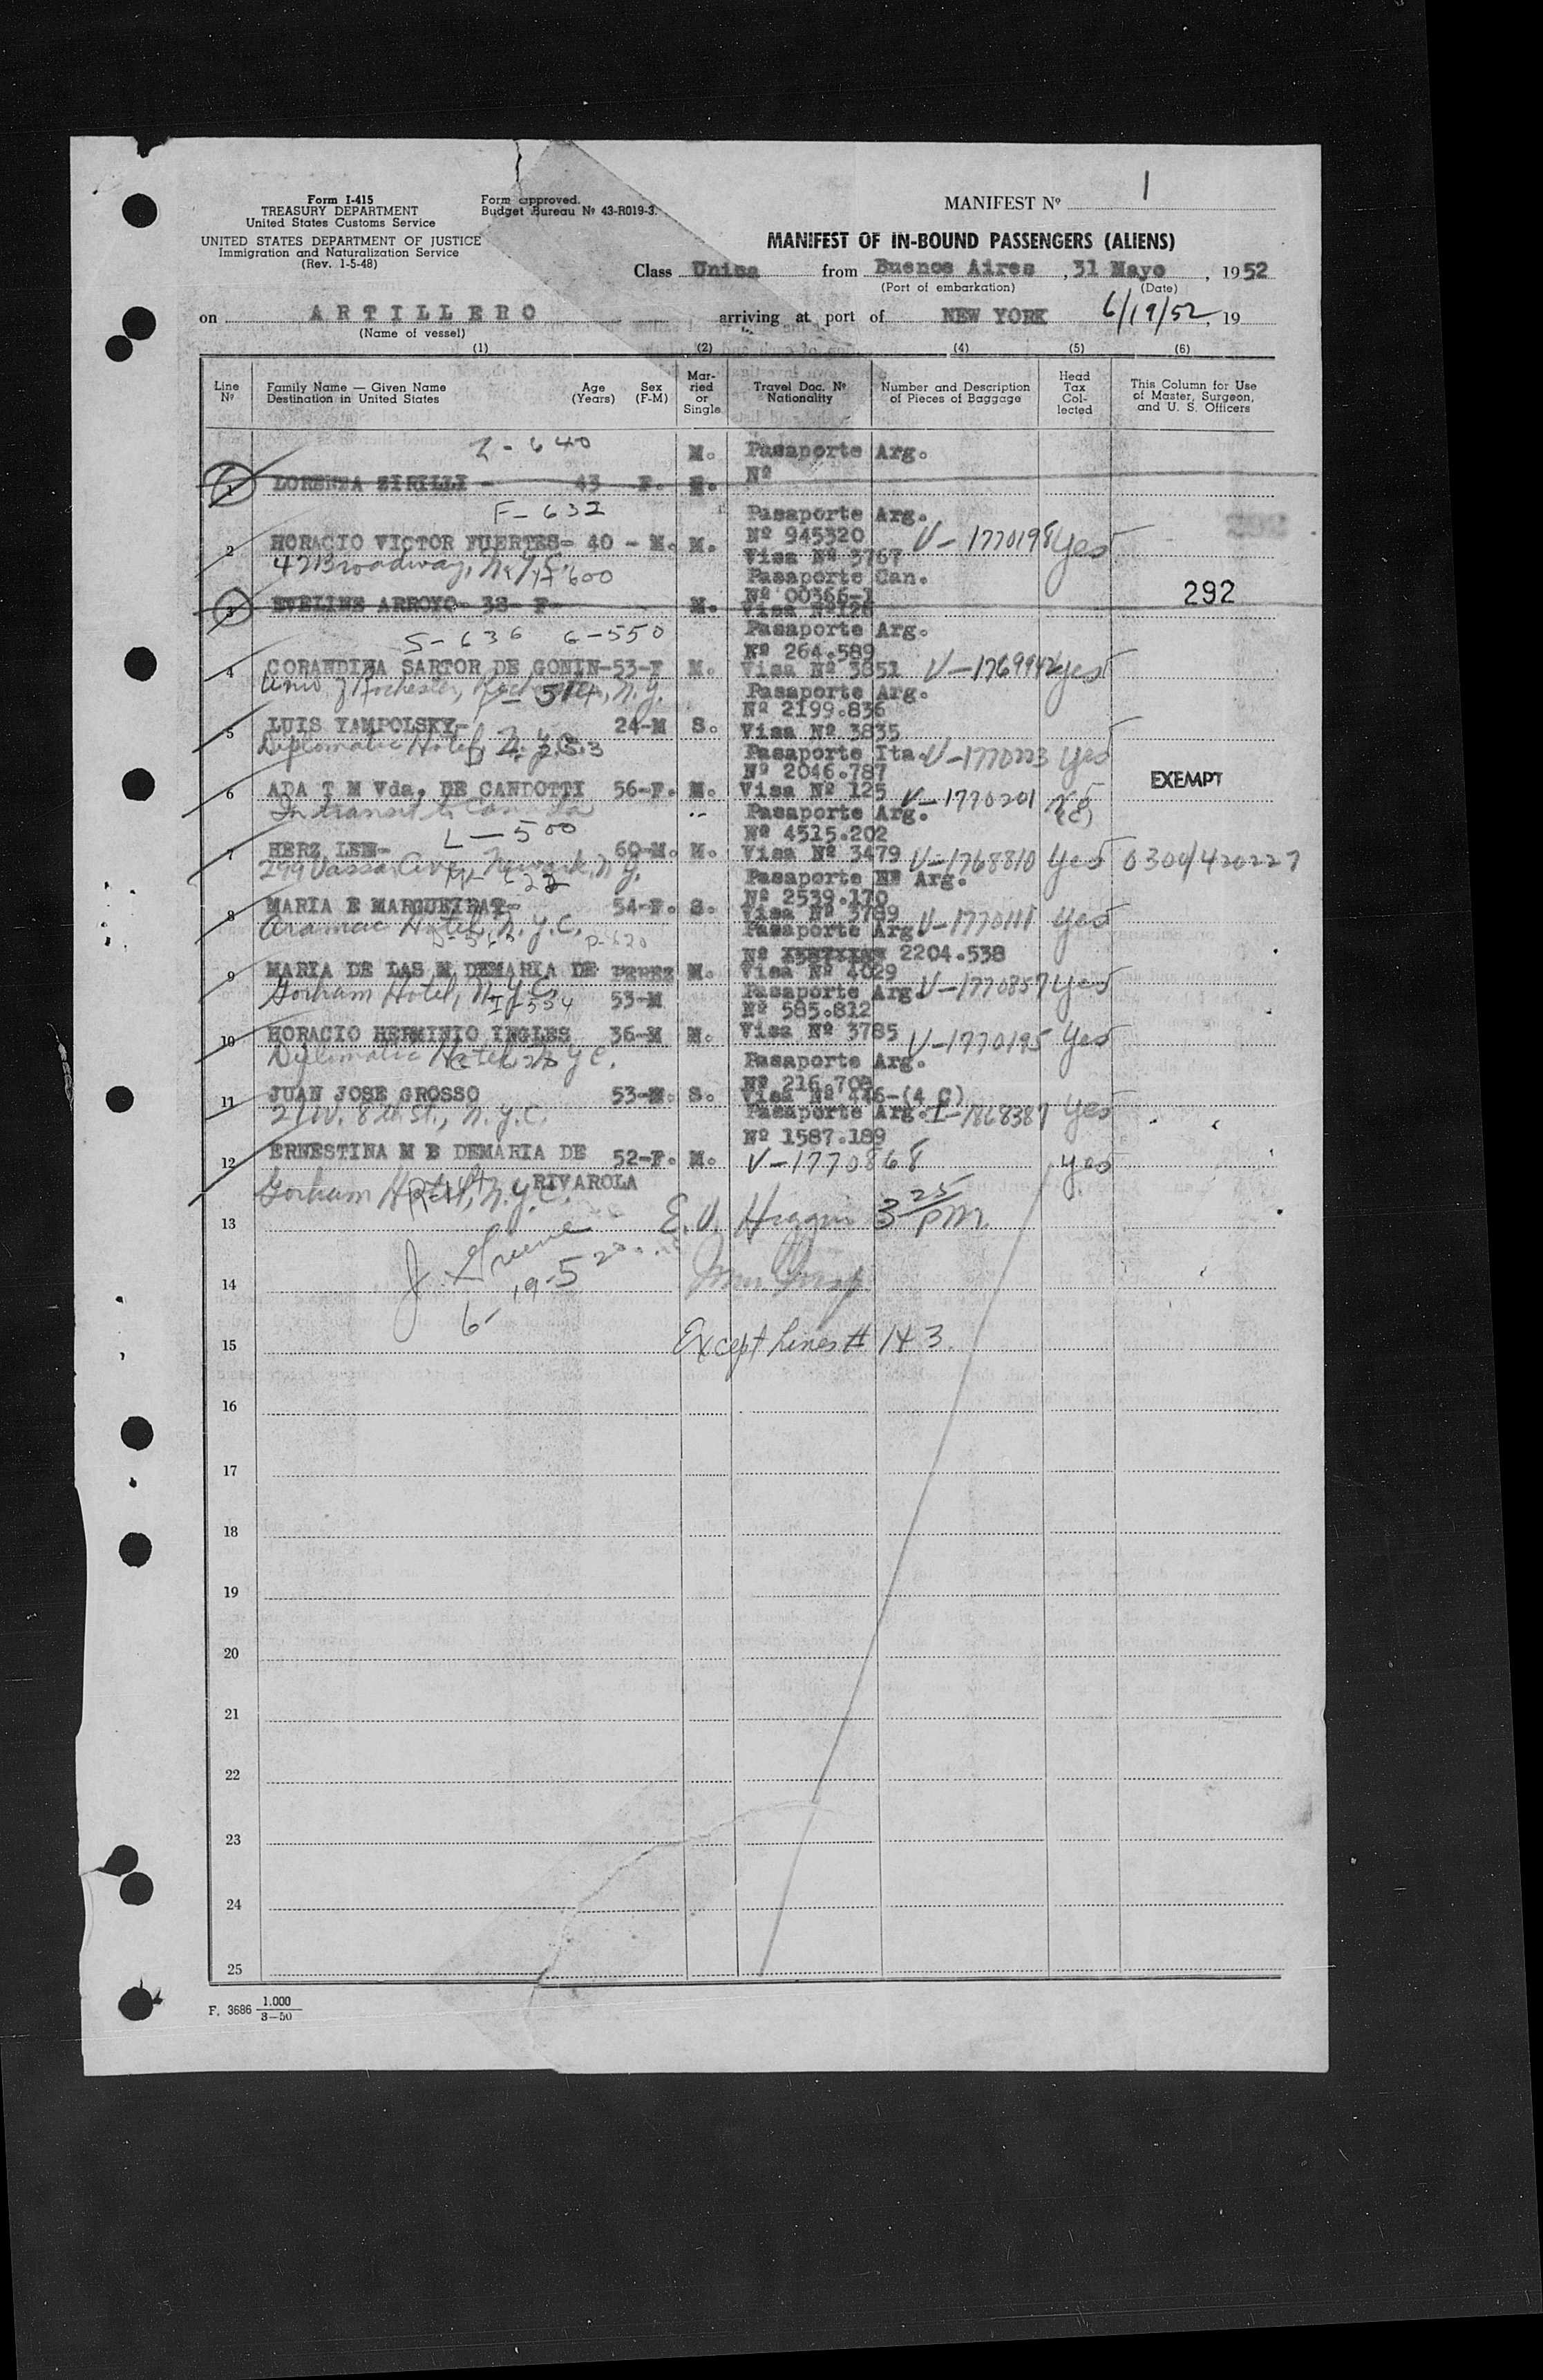 1
Form I-415
TREASURY DEPARTMENT
United States Customs Service
UNITED STATES DEPARTMENT OF JUSTICE
Immigration and Naturalization Service
(Rev. 1-5-48)
Form approved.
Budget Bureau Nº 43-R019-3.
MANIFEST Nº
MANIFEST OF IN-BOUND PASSENGERS (ALIENS)
Class Unica from Buenos Aires, 31 Mayo, 1952
(Port of embarkation) (Date)
on ARTILLERO arriving at port of NEW YORK 6/19/52, 19
(Name of vessel)
(1) (2) (4) (5) (6)
Line Nº
Family Name — Given Name
Destination in United States
Age (Years)
Sex (F-M)
Married or Single
Travel Doc. Nº
Nationality
Number and Description of Pieces of Baggage
Head Tax Collected
This Column for Use of Master, Surgeon, and U. S. Officers
Z-640 M. Pasaporte Arg.
1 LORENZA ZIRILLI - 43 F. Nº
F-632 Pasaporte Arg.
Nº 945320
2 HORACIO VICTOR FUERTES- 40 - M. M. Visa Nº 3767 V-1770198 yes
42 Broadway, N.Y.C. 600 Pasaporte Can.
Nº 00366-1 292
3 EVELINE ARROYO- 38- F- M. Visa Nº126
S-636 G-550 Pasaporte Arg.
Nº 264.589
4 CORANDINA SARTOR DE GONIN-53-F M. Visa Nº 3851 V-1769942 yes
Univ of Rochester, N.Y. 514 Pasaporte Arg.
Nº 2199.836
5 LUIS YAMPOLSKY- 24-M S. Visa Nº 3835
Diplomatic Hotel, N.Y.C. Pasaporte Ita. V-1770223 yes
Nº 2046.787 EXEMPT
6 ADA T M Vda. DE CANDOTTI 56-F. M. Visa Nº 125 V-1770201
In transit to Canada Pasaporte Arg.
L-500 Nº 4515.202
7 HERZ LEN- 60-M. M. Visa Nº 3479 V-1768810 yes 0300/420227
299 Vassar Ave, Newark, N.J. Pasaporte Nº Arg.
Nº 2539.170
8 MARIA E MARGUEIRAT- 54-F. S. Visa Nº 3789
Aramac Hotel, N.Y.C. Pasaporte Arg. V-1770111 yes
P-620 Nº 2204.538
9 MARIA DE LAS M DEMARIA DE PEREZ M. Visa Nº 4029
Gorham Hotel, N.Y.C. 53-M Pasaporte Arg. V-1770857 yes
I-524 Nº 585.812
10 HORACIO HERMINIO INGLES 36-M M. Visa Nº 3785 V-1770195 yes
Diplomatic Hotel N.Y.C. Pasaporte Arg.
Nº 216.708
11 JUAN JOSE GROSSO 53-M. S. Visa Nº 446-(4 C)
21 W. 8th St., N.Y.C. Pasaporte Arg. I-1868387 yes
Nº 1587.189
12 ERNESTINA M E DEMARIA DE 52-F. M. V-1770868 yes
RIVAROLA
Gorham Hotel, N.Y.C.
13 E. V. Higgin 3 25/PM
J. Greene
14 6-19-52 Imm. Insp.
15 Except lines # 1 & 3.
16
17
18
19
20
21
22
23
24
25
F. 3686 1.000
3-50